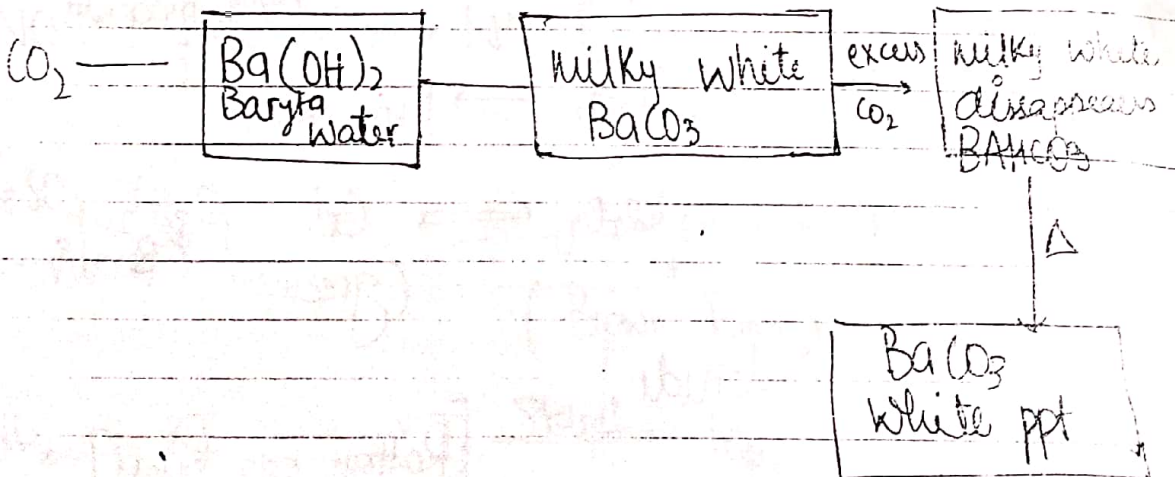 CO2
Ba(OH)2
Baryta
Water
milky white
BaCO3
excess
CO2
milky white
dissappears
BAHCO3
Δ
BaCO3
White ppt